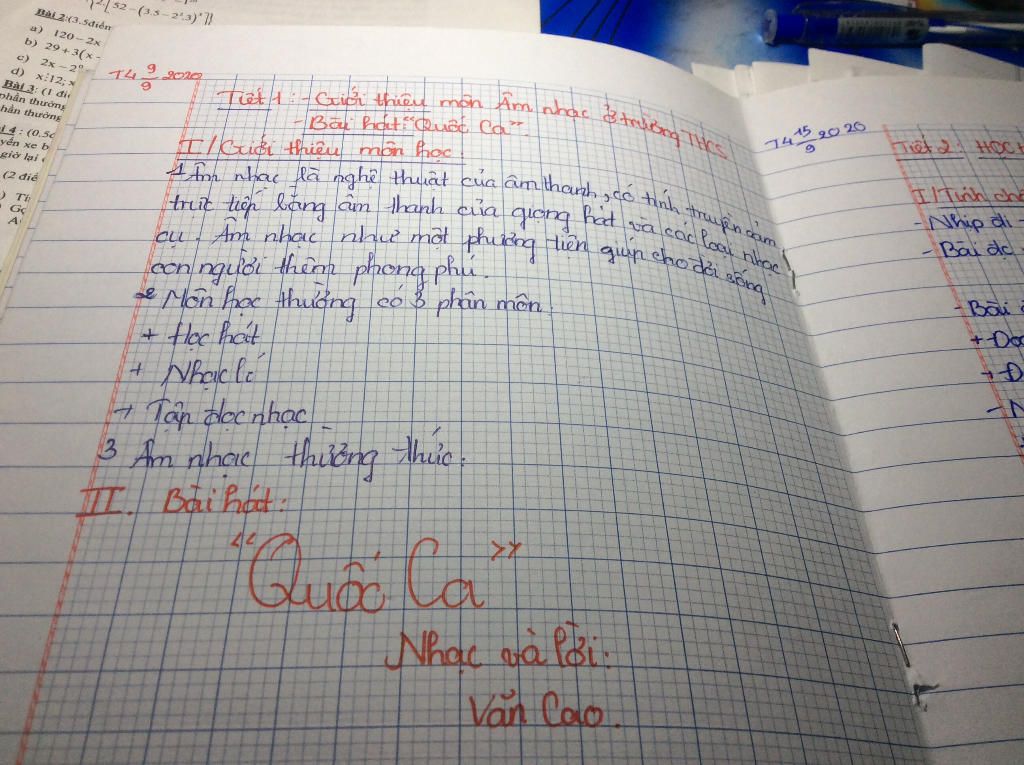 2.[52-(3.5-2².3)²]}
Bài 2:(3.5điểm
a) 120-2x
b) 29+3(x-
c) 2x-2
d) x⋮12; x
Bài 3: (1 điể
phần thưởng
hần thưởng
4 : (0.5đ
yến xe b
giờ lại
(2 điể
T4 9/9 2020
Tiết 1: - Giới thiệu môn Âm nhạc ở trường THCS
- Bài hát: "Quốc Ca".
I/Giới thiệu môn học:
1 Âm nhạc là nghệ thuật của âm thanh, có tính truyền cảm
trực tiếp bằng âm thanh của giọng hát và các loại nhạc
cụ. Âm nhạc như một phương tiện giúp cho đời sống
con người thêm phong phú.
2 Môn học thường có 3 phân môn:
+ Học hát
+ Nhạc lí
+ Tập đọc nhạc
3 Âm nhạc thường thức.
II. Bài hát:
"Quốc Ca"
Nhạc và lời:
Văn Cao.
T4 15/9 2020
Tiết 2: HỌC H
I/Tính ch
- Nhịp đi
- Bài đc
- Bài
+ Đoạ
+ Đ
- N